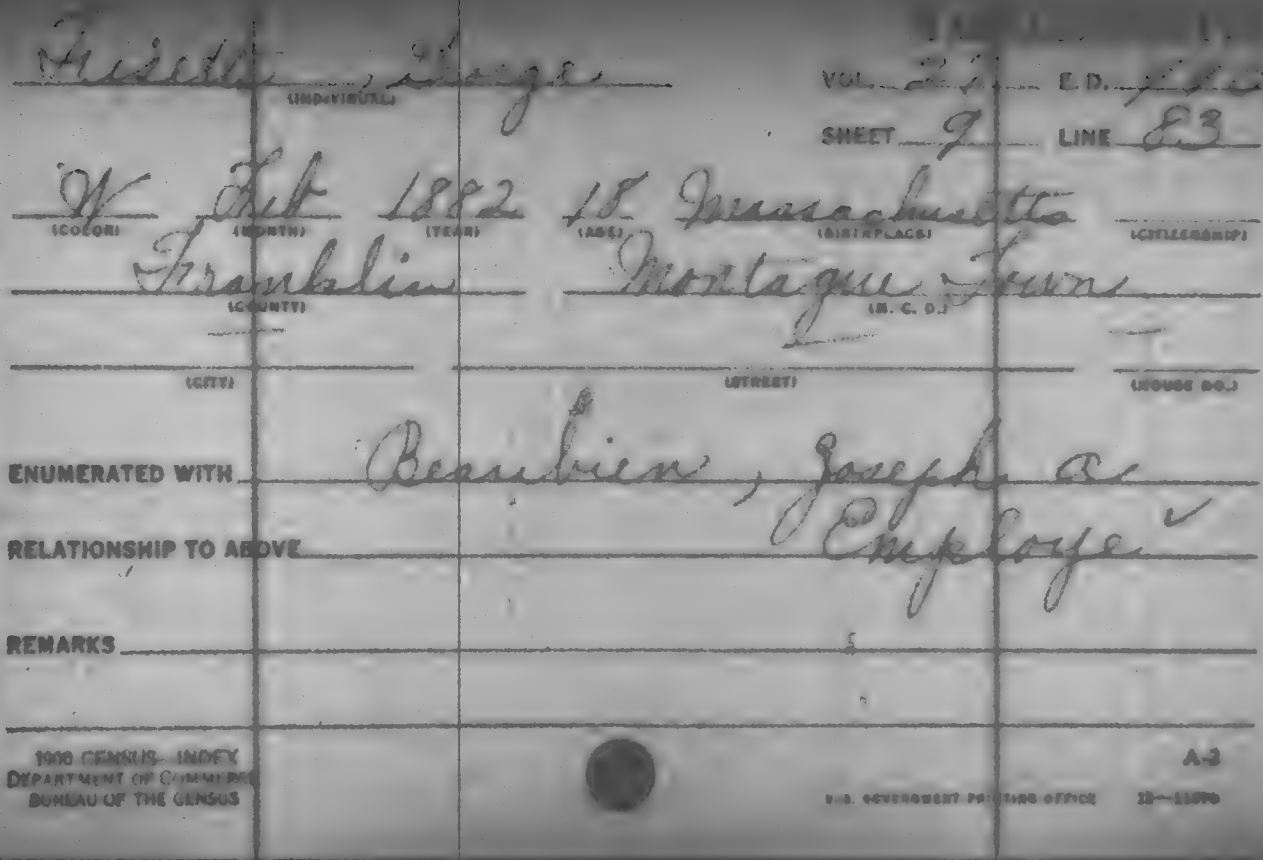 George
(INDIVIDUAL)
VOL. E. D.
SHEET 9 LINE 83
W Feb 1882 18 Massachusetts
(COLOR) (MONTH) (YEAR) (AGE) (BIRTHPLACE) (CITIZENSHIP)
Franklin Montague Town
(COUNTY) (M. C. D.)
(CITY) (STREET) (HOUSE NO.)
ENUMERATED WITH Beaubien, Joseph A
RELATIONSHIP TO ABOVE Employe ✓
REMARKS
1900 CENSUS—INDEX A-3
DEPARTMENT OF COMMERCE
BUREAU OF THE CENSUS U.S. GOVERNMENT PRINTING OFFICE